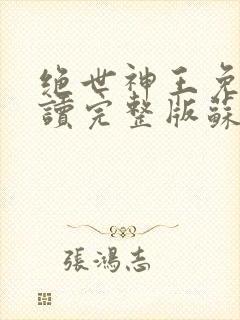 绝世神王免
讀完整版蘇
張鴻志